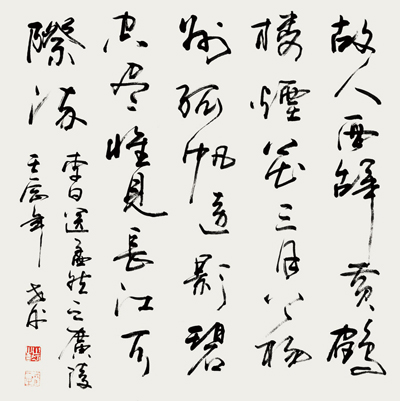 故人西辭黄鶴
楼煙花三月下揚
州孤帆遠影碧
空尽惟見長江天
際流
李白送孟然之廣陵
壬辰年